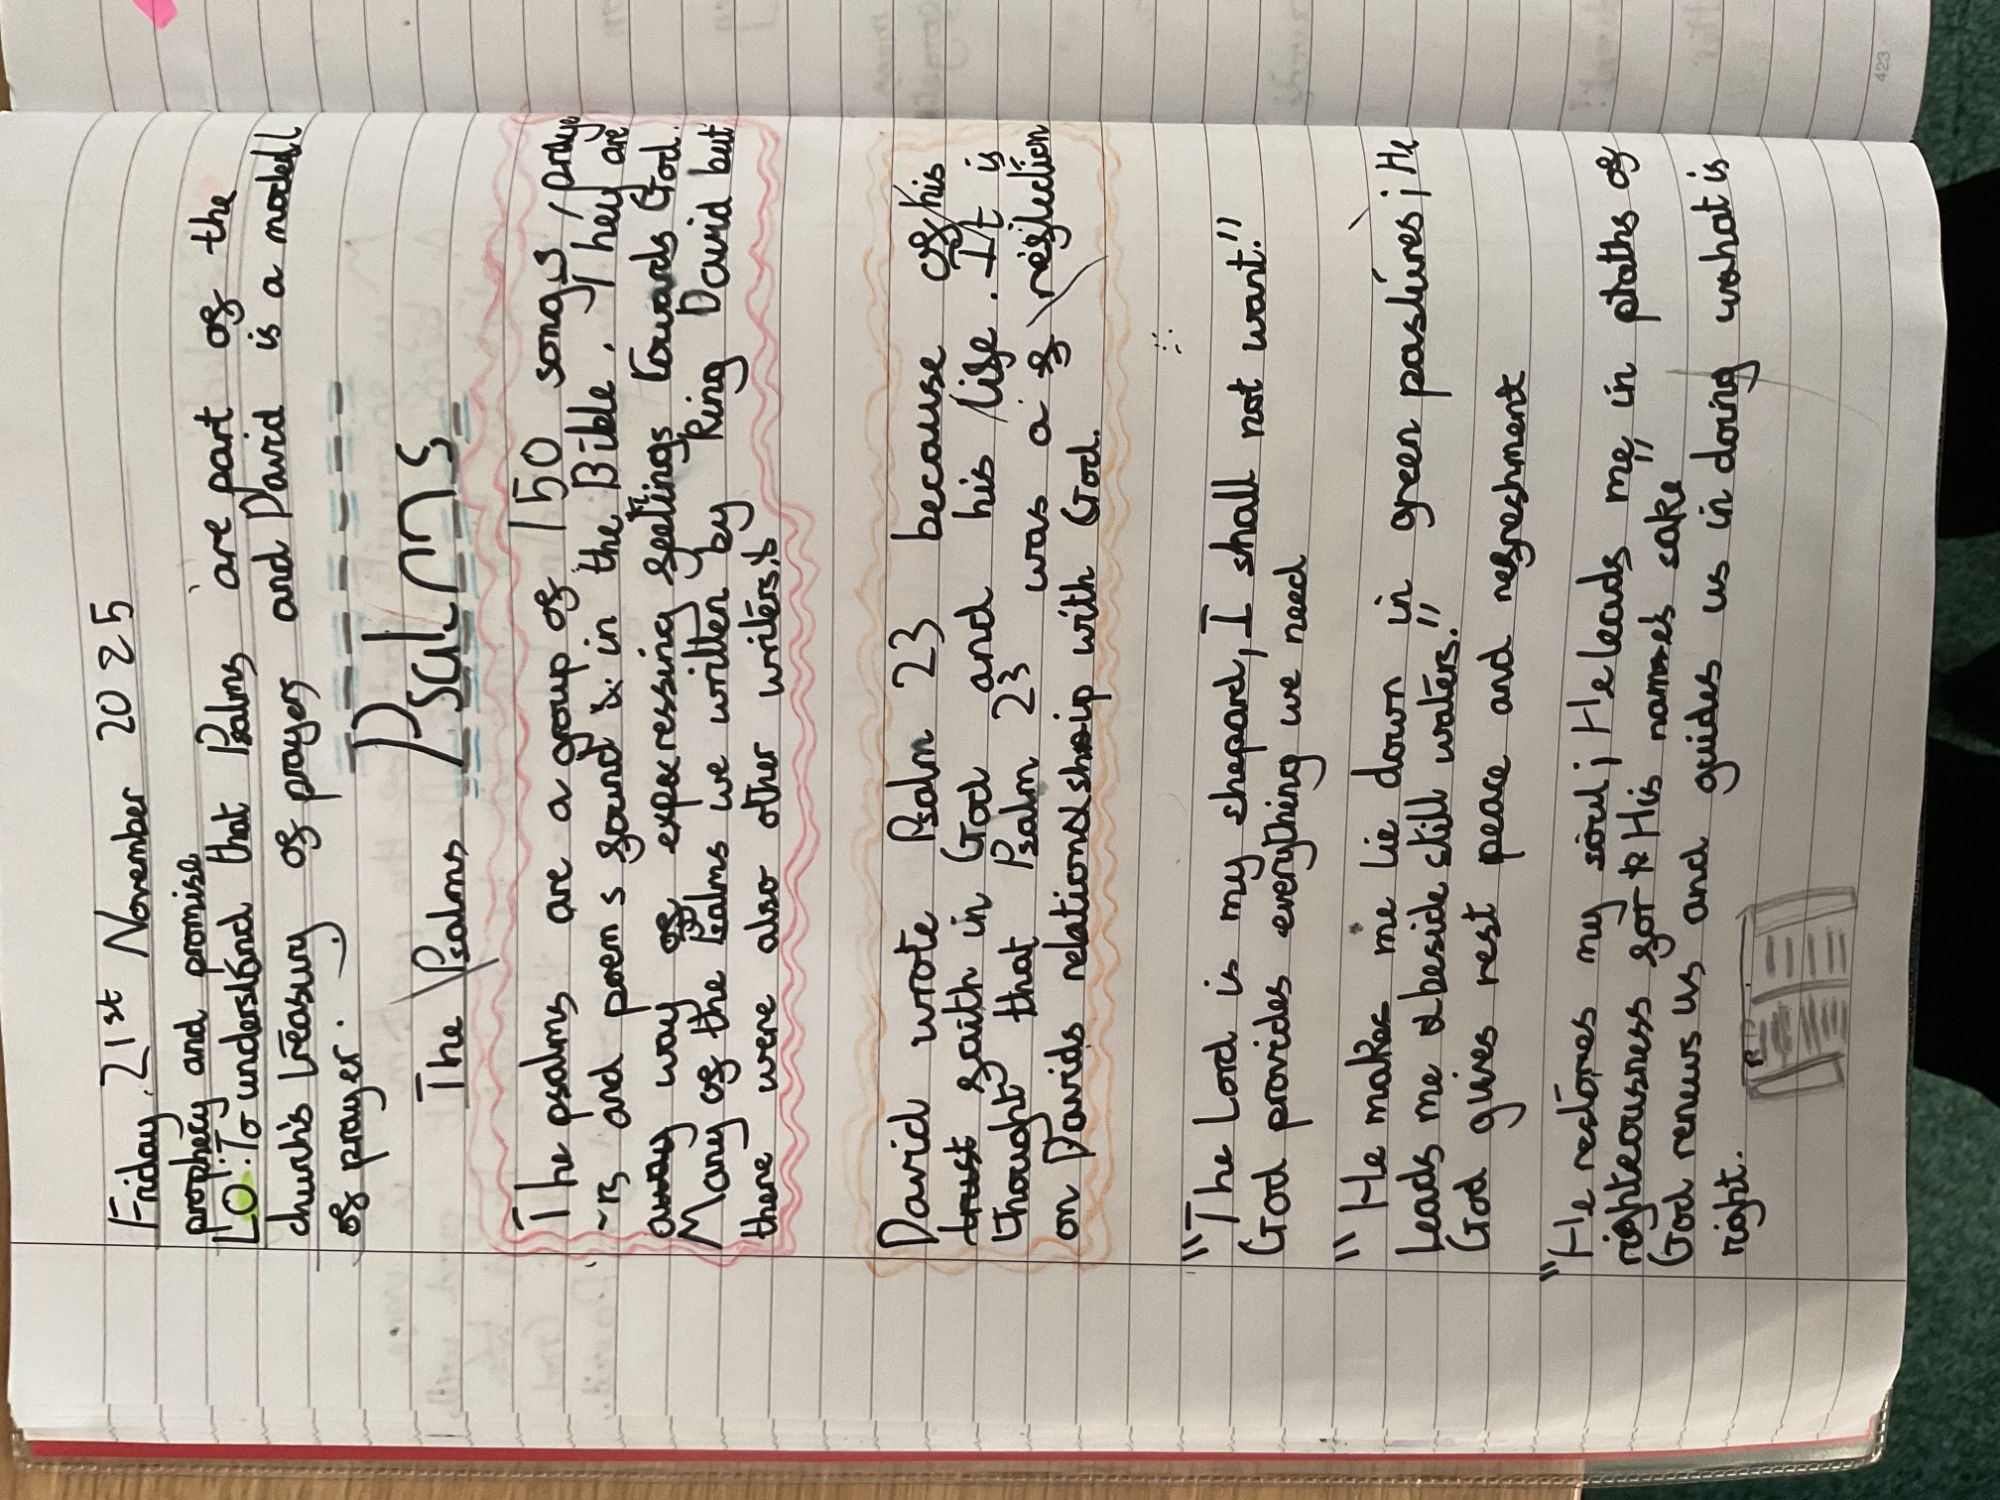 Friday 21st November 2025
prophecy and promise
LO: To understand that Psalms are part of the
church's treasury of prayer and David is a modell
of prayer.
The Psalms Psalms
The psalms are a group of 150 songs, praye
~rs and poems found in the Bible. They are
away way of expressing feelings towards God.
Many of the Psalms we written by King David but
there were also other writers.
David wrote Psalm 23 because of his
trust faith in God and his life. It is
thought that Psalm 23 was a reflection
on Davids relationship with God.
"The Lord is my shepard, I shall not want."
God provides everything we need
"He makes me lie down in green pastures; He
leads me beside still waters."
God gives rest peace and refreshment
"He restores my soul; He leads me in phaths of
righteousness for His names sake"
God renews us and guides us in doing what is
right.
423